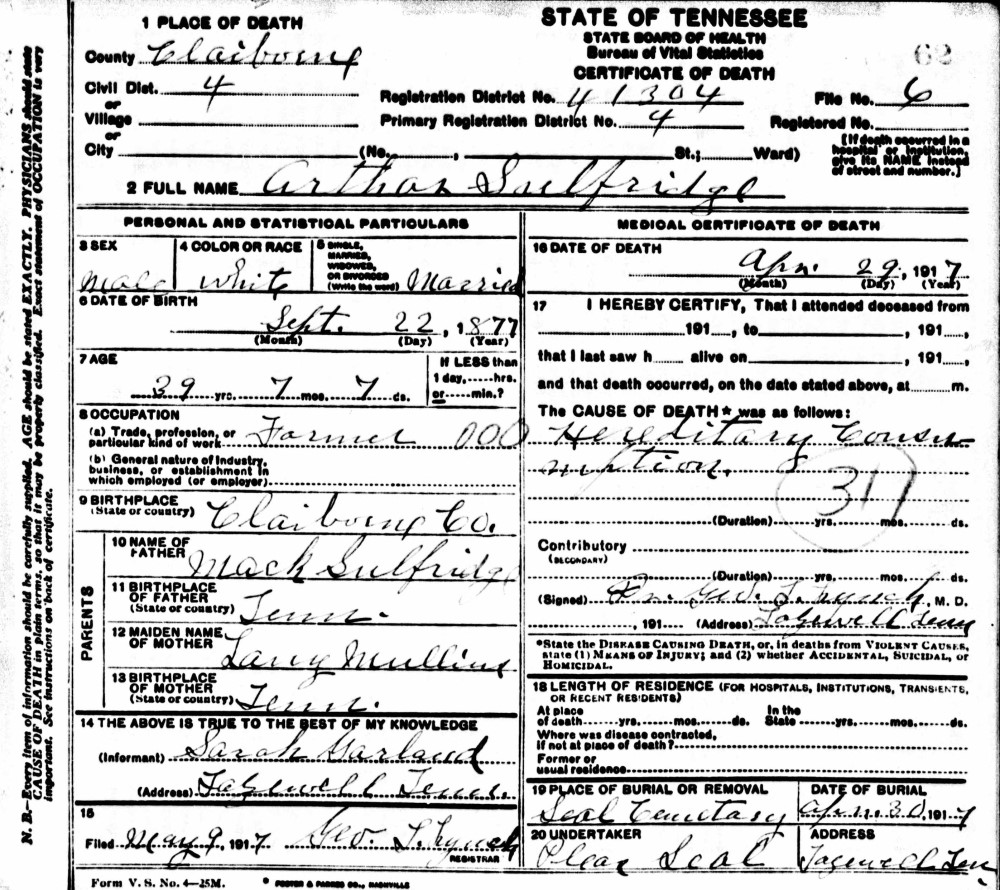 STATE OF TENNESSEE
STATE BOARD OF HEALTH
Bureau of Vital Statistics
CERTIFICATE OF DEATH
62
1 PLACE OF DEATH
County Claiborne
Civil Dist. 4
or
Village
or
City (No. , St.; Ward)
Registration District No. 41304 File No. 6
Primary Registration District No. 4 Registered No.
[If death occurred in a
hospital or institution,
give its NAME instead
of street and number.]
2 FULL NAME Arthor Sulfridge
PERSONAL AND STATISTICAL PARTICULARS
3 SEX
Male
4 COLOR OR RACE
White
5 SINGLE,
MARRIED,
WIDOWED,
OR DIVORCED
(Write the word) Married
6 DATE OF BIRTH
Sept. 22, 1877
(Month) (Day) (Year)
7 AGE
39 yrs. 7 mos. 7 ds.
If LESS than
1 day, hrs.
or min.?
8 OCCUPATION
(a) Trade, profession, or
particular kind of work Farmer 000
(b) General nature of industry,
business, or establishment in
which employed (or employer)
9 BIRTHPLACE
(State or country) Claiborne Co.
PARENTS
10 NAME OF
FATHER Mack Sulfridge
11 BIRTHPLACE
OF FATHER
(State or country) Tenn.
12 MAIDEN NAME
OF MOTHER Mullins
13 BIRTHPLACE
OF MOTHER
(State or country) Tenn.
14 THE ABOVE IS TRUE TO THE BEST OF MY KNOWLEDGE
(Informant) Sarah Garland
(Address) Tazewell Tenn.
15
Filed May 9, 1917 Geo. L. Lynch
REGISTRAR
MEDICAL CERTIFICATE OF DEATH
16 DATE OF DEATH
Apr. 29, 1917
(Month) (Day) (Year)
17 I HEREBY CERTIFY, That I attended deceased from
191 , to , 191 ,
that I last saw h alive on , 191 ,
and that death occurred, on the date stated above, at m.
The CAUSE OF DEATH* was as follows:
Hereditary Consu
mption.
311
(Duration) yrs. mos. ds.
Contributory
(SECONDARY)
(Duration) yrs. mos. ds.
(Signed) Dr. Geo. L. Lynch, M. D.
, 191 (Address) Tazewell Tenn
*State the DISEASE CAUSING DEATH, or, in deaths from VIOLENT CAUSES,
state (1) MEANS OF INJURY; and (2) whether ACCIDENTAL, SUICIDAL, or
HOMICIDAL.
18 LENGTH OF RESIDENCE (FOR HOSPITALS, INSTITUTIONS, TRANSIENTS,
OR RECENT RESIDENTS)
At place In the
of death yrs. mos. ds. State yrs. mos. ds.
Where was disease contracted,
if not at place of death?
Former or
usual residence
19 PLACE OF BURIAL OR REMOVAL
Seal Cemetary
DATE OF BURIAL
Apr. 30, 1917
20 UNDERTAKER
Seal
ADDRESS
Tazewell Tenn
Form V. S. No. 4—25M. FOSTER & PARKES CO., NASHVILLE
N. B.—Every item of information should be carefully supplied. AGE should be stated EXACTLY. PHYSICIANS should state
CAUSE OF DEATH in plain terms, so that it may be properly classified. Exact statement of OCCUPATION is very
important. See instructions on back of certificate.